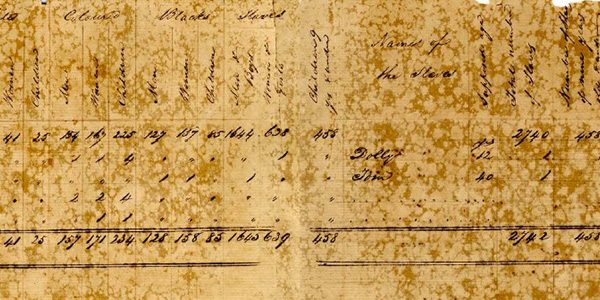 Coloured Blacks Slaves
Women Children Men Women Children Men Women Children Men & Boys Women & Girls Children Names of the Slaves Suppose age Total number of Slaves Number of
41 25 154 167 225 127 157 85 1644 638 458 2740 458
" " 1 1 4 " " " " 1 " Dolly 12 " 1
" " " " " 1 1 " 1 " " 40 " 1
" " 2 2 4 " " " " "
" " " 1 1 " " " " "
41 25 157 171 234 128 158 85 1645 639 458 2742 458